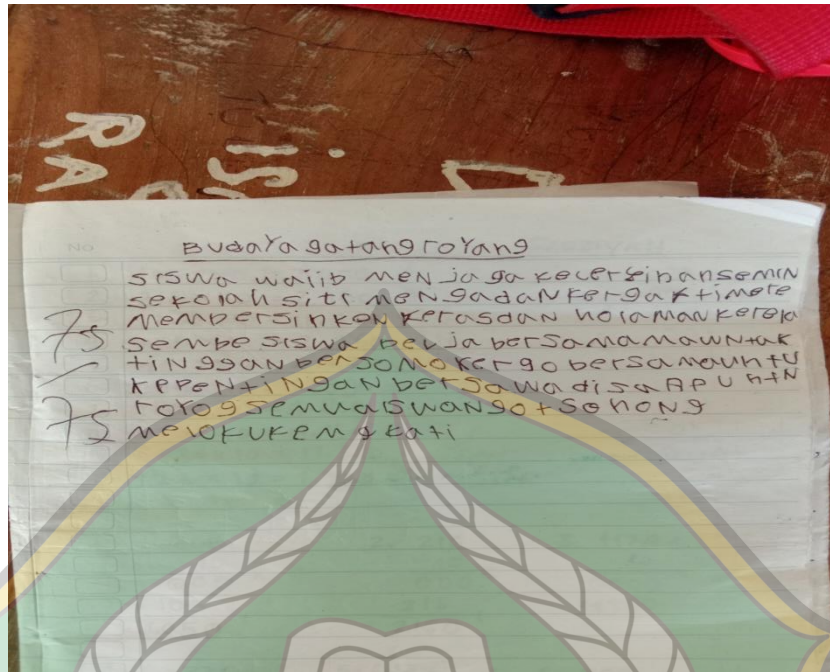 RA
NO
Budaya gatang royang
siswa wajib menjaga kecerseinansemin
sekolah siti mengadankergaktimere
membersinken kerasdan holamankerela
sembe siswa berja bersamamawntak
tingganbensomokergobersamauntu
kppentingan bersawadisaapuntn
rorogsemuaiswangotsohong
melokukemgkati
75
75